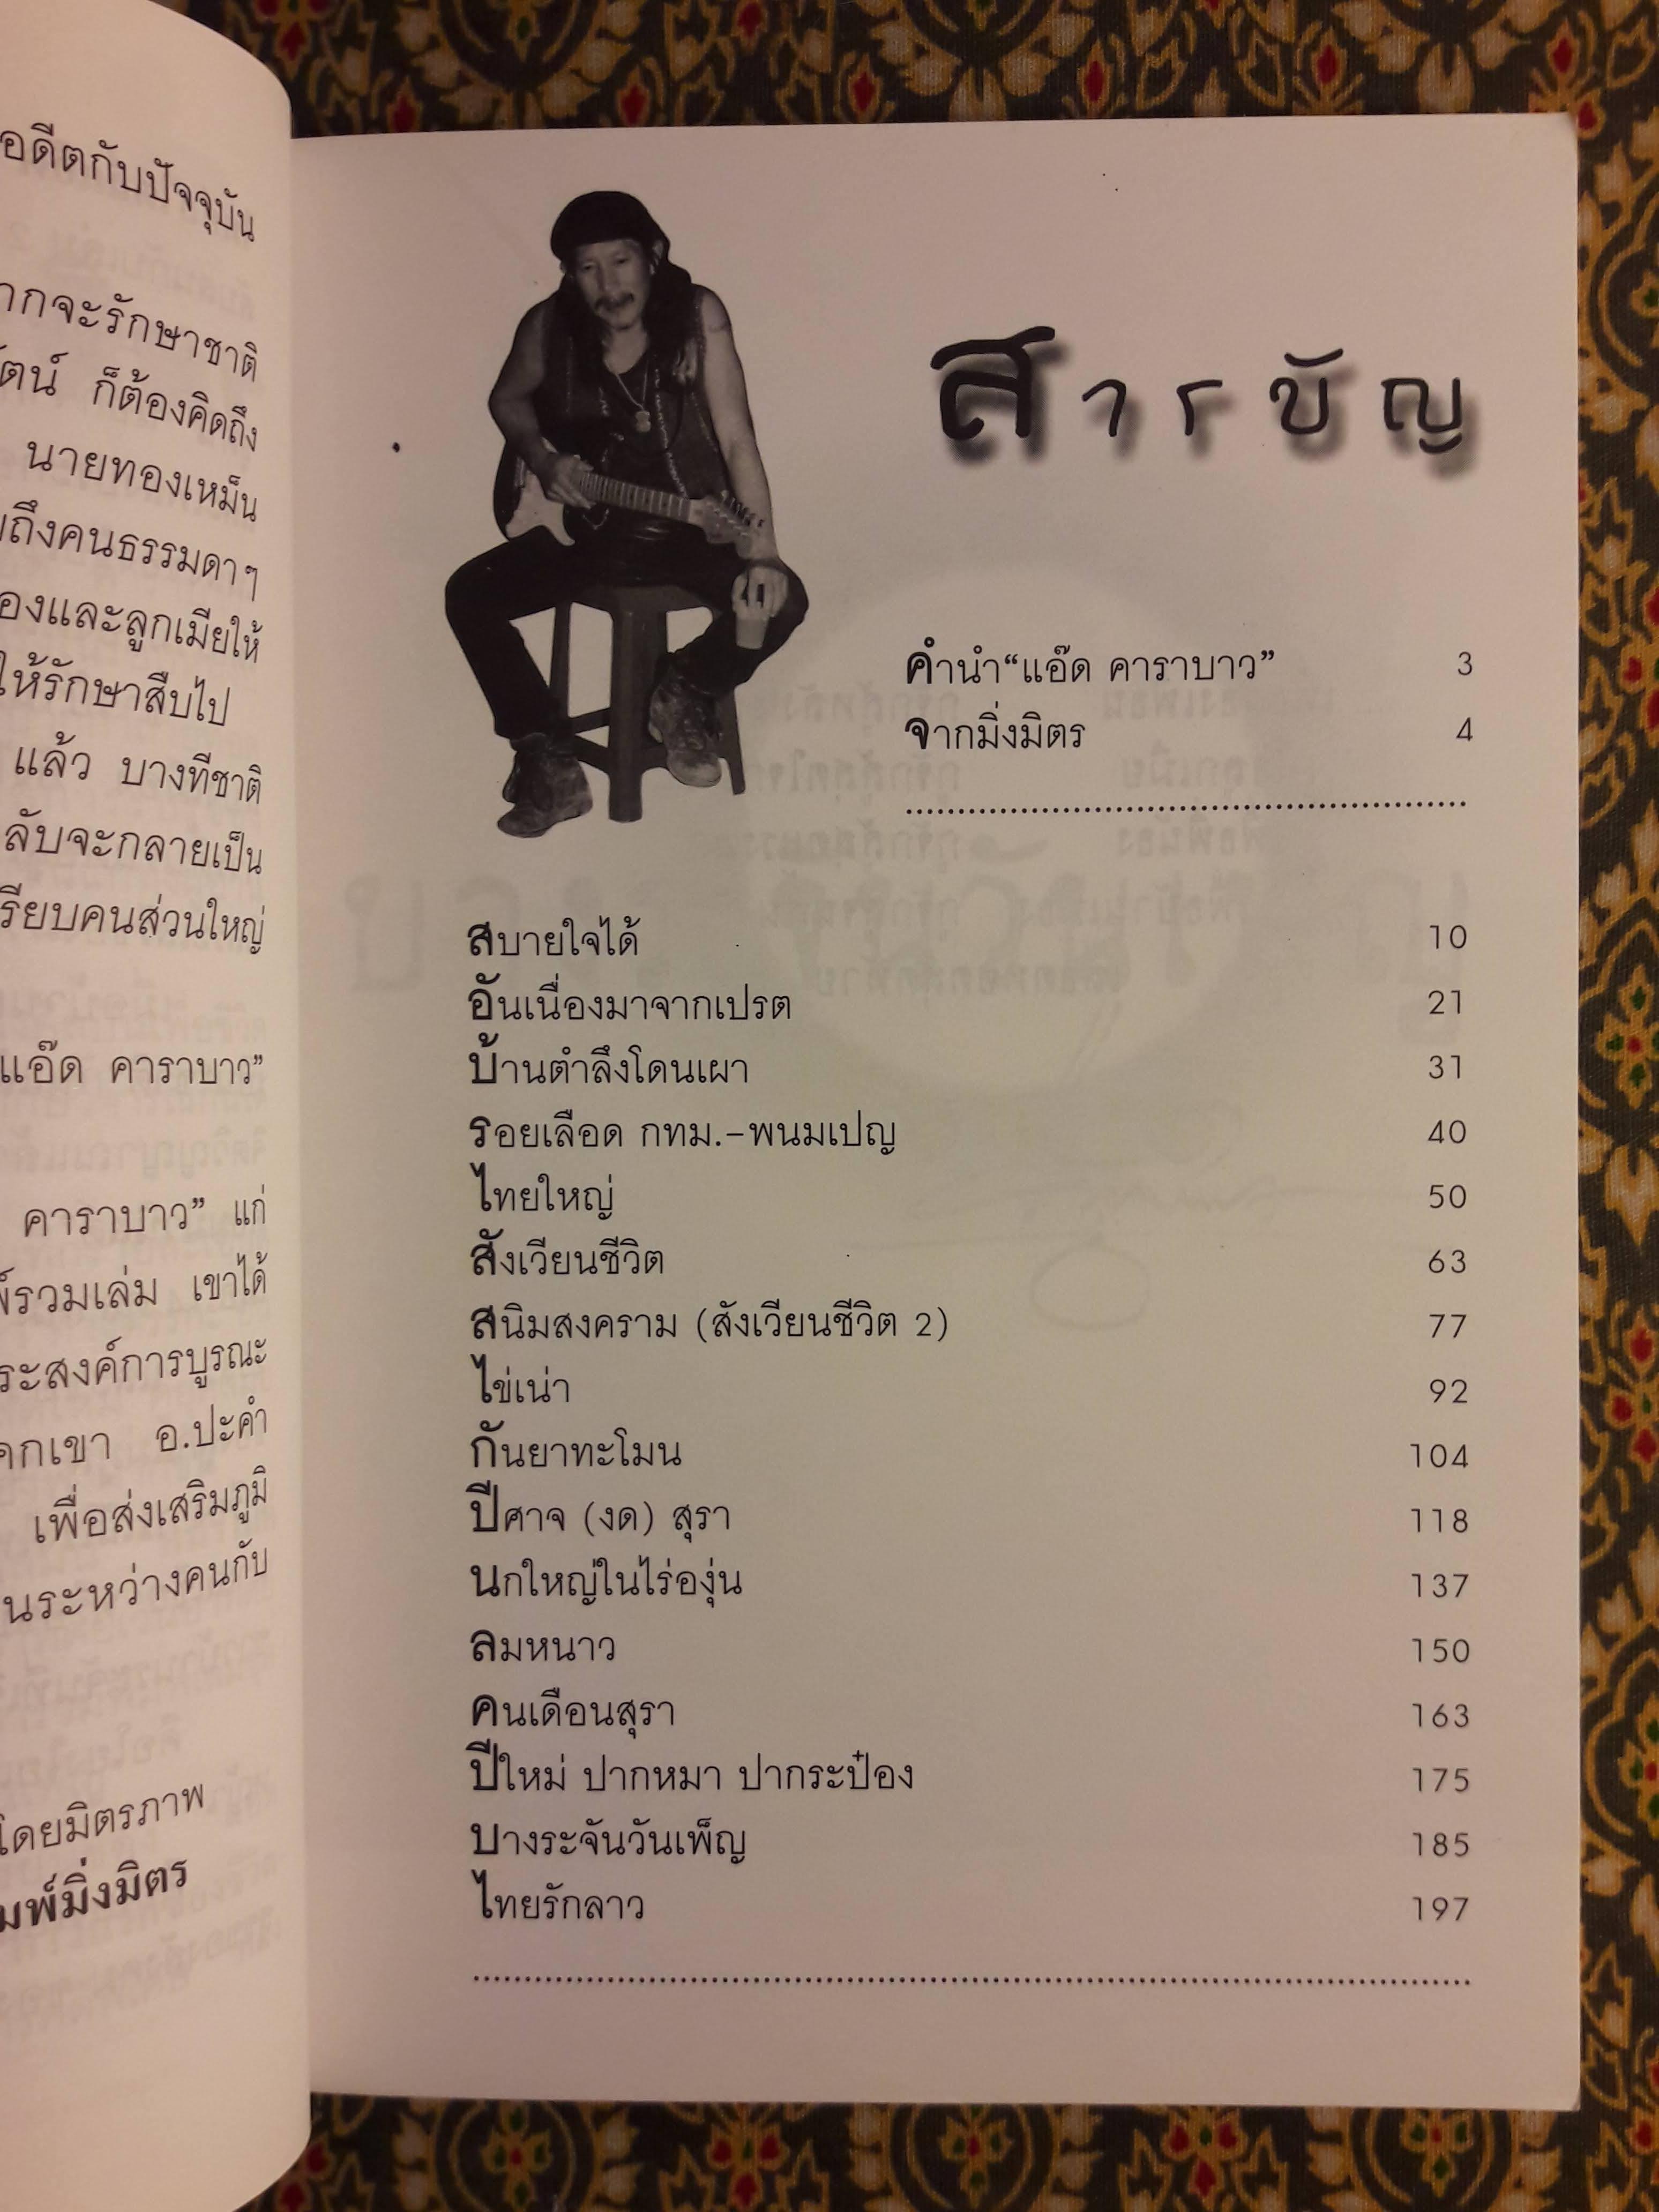 อดีตกับปัจจุบัน
จะรักษาชาติ
ก็ต้องคิดถึง
นายทองเหม็น
ถึงคนธรรมดาๆ
และลูกเมียให้
ให้รักษาสืบไป
แล้ว บางทีชาติ
จะกลายเป็น
คนส่วนใหญ่
แอ๊ด คาราบาว”
คาราบาว” แก่
รวมเล่ม เขาได้
การบูรณะ
อ.ปะคำ
เพื่อส่งเสริมภูมิ
ระหว่างคนกับ
โดยมิตรภาพ
มิ่งมิตร
สารบัญ
คำนำ“แอ๊ด คาราบาว” 3
จากมิ่งมิตร 4
สบายใจได้ 10
อันเนื่องมาจากเปรต 21
บ้านตำลึงโดนเผา 31
รอยเลือด กทม.-พนมเปญ 40
ไทยใหญ่ 50
สังเวียนชีวิต 63
สนิมสงคราม (สังเวียนชีวิต 2) 77
ไข่เน่า 92
กันยาทะโมน 104
ปีศาจ (งด) สุรา 118
นกใหญ่ในไร่องุ่น 137
ลมหนาว 150
คนเดือนสุรา 163
ปีใหม่ ปากหมา ปากระป๋อง 175
บางระจันวันเพ็ญ 185
ไทยรักลาว 197